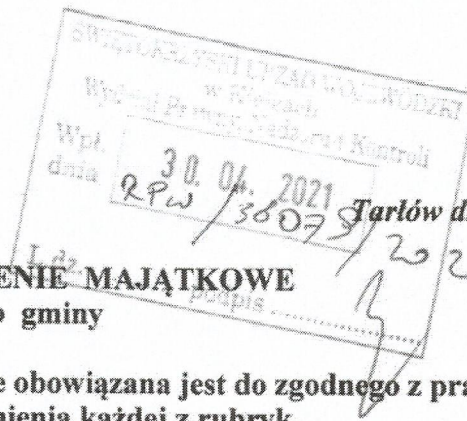 ŚWIĘTOKRZYSKI URZĄD WOJEWÓDZKI
w Kielcach
Wydział Prawny, Nadzoru i Kontroli
Wpł.
dnia
30. 04. 2021
RPW / 36075 / 202
Tarłów d
L.dz.
podpis
ENIE MAJĄTKOWE
o gminy
e obowiązana jest do zgodnego z pra
nienia każdej z rubryk